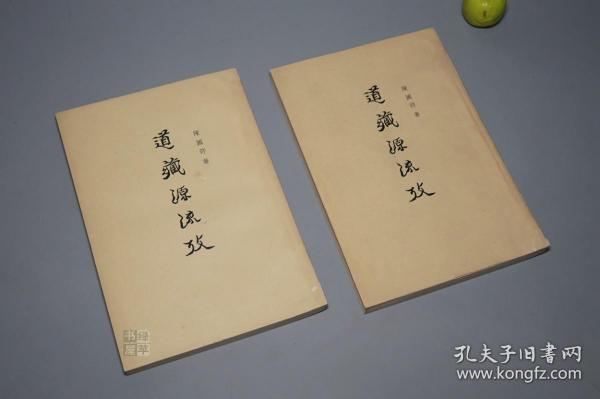 道藏源流攷
陳國符著
道藏源流攷
陳國符著
绿草书屋
孔夫子旧书网
www.kongfz.com